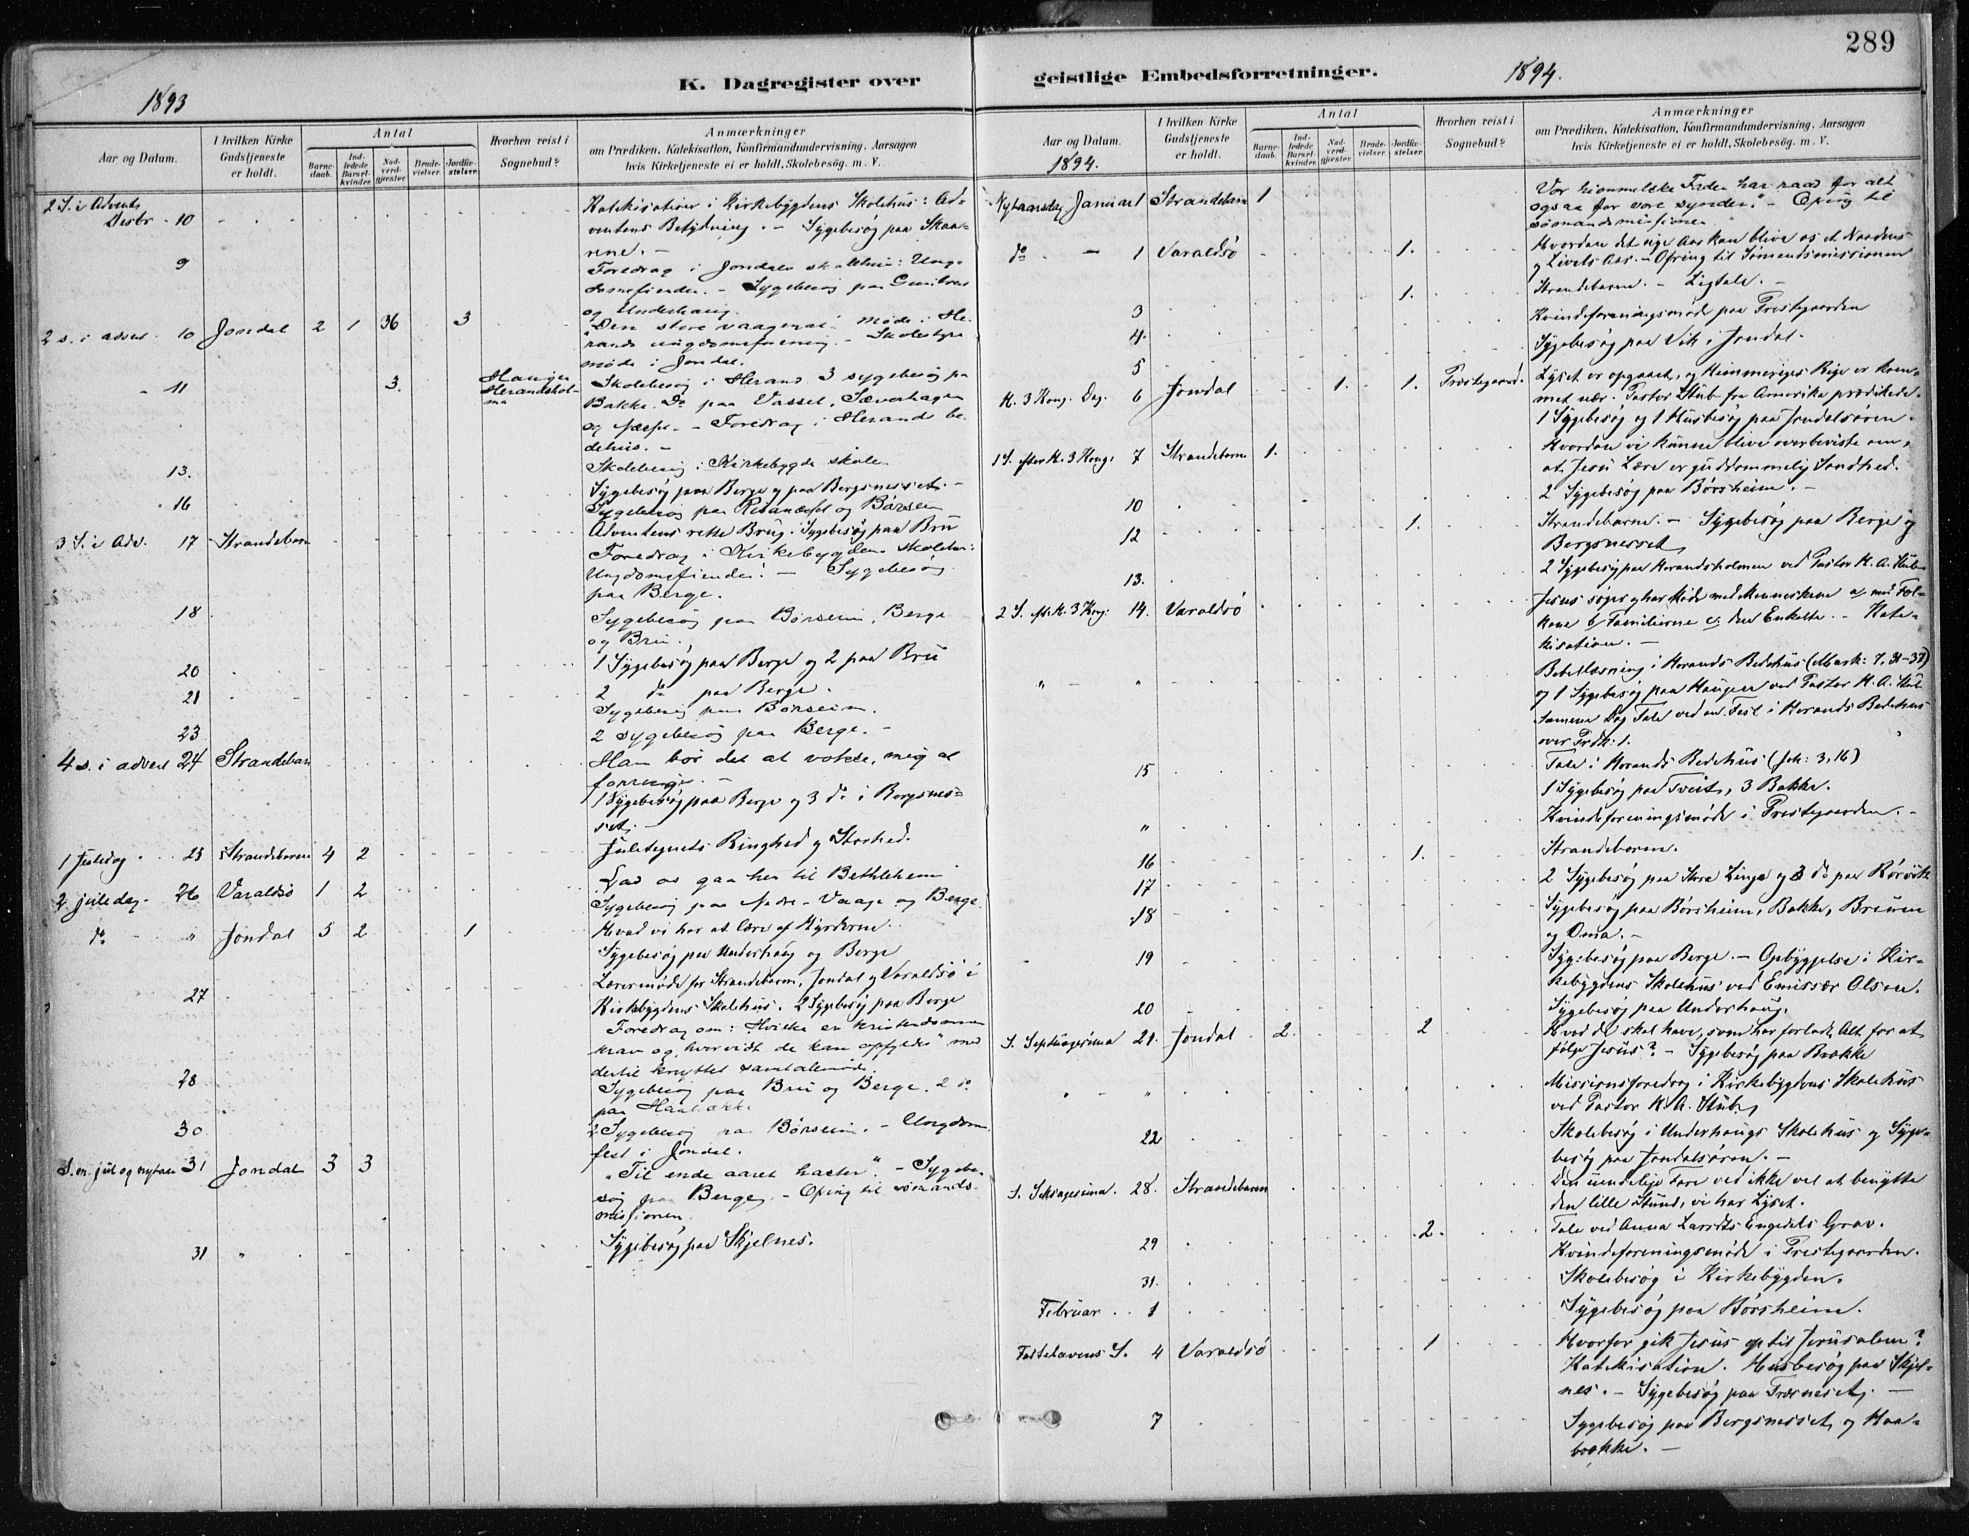 289
K. Dagregister over
geistlige Embedsforretninger.
1893
1894.
Aar og Datum.
I hvilken Kirke Gudstjeneste er holdt.
Antal
Barne-daab.
Ind-ledede Barsel-kvinder.
Nad-verd-gjester
Brude-vielser.
Jordfæ-stelser.
Hvorhen reist i Sognebud?
Anmærkninger
om Prædiken, Katekisation, Konfirmandundervisning, Aarsagen
hvis Kirketjeneste ei er holdt, Skolebesøg, m. V.
2 S. i Advents
Desbr 10 Katekisation i Kirkebygdens Skolehus: Ad-
ventens Betydning. - Sygebesøg paa
9 Foredrag i Jondals skolehus: Ung-
domsfiender. - Sygebesøg paa
og Underhaug.
2 s. i advent 10 Jondal 2 1 36 3 "Den store vaagenat" møde i He-
rands ungdomsforening. - Skolestyre
møde i Jondal.
11 3. Haugen Herandshol-ma Skolebesøg i Herand 3 sygebesøg pa
Bakke. Do paa Vassel, Sæverhagen
og - Foredrag i Herands be-
dehus. -
13. Skolebesøg i Kirkebygds skole
Sygebesøg paa Berge og paa Bergsnesset. -
16 Sygebesøg paa og Børsem
3 S. i Adv. 17 Strandebarm Adventens rette Brug. Sygebesøg paa Bru
Foredrag i Kirkebygdens Skolehus:
Ungdomsfiender. - Sygebesøg
paa Berge.
18 Sygebesøg paa Børseim, Berge
og Bru.
20 1 Sygebesøg paa Berge og 2 paa Bru
21 2 do paa Berge.
Sygebesøg paa Børseim.
23 2 sygebesøg paa Berge. -
4 s. i advent 24 Strandebarm Ham bør det at vokse, mig at
forringes. -
1 Sygebesøg paa Berge og 3 do i Bergsnes-
set.
1 Juledag 25 Strandebarm 4 2 Juletegnets Ringhed og Storhed.
2 juledag. 26 Varaldsø 1 2 Lad os gaa hen til Bethlehem
Sygebesøg paa Nedre-Vaage og Berge.
do " Jondal 5 2 1 Hvad vi har at lære af Hyrderne.
Sygebesøg paa Underhaug og Berge
27 Lærermøde for Strandebarm, Jondal og Varaldsø i
Kirkebygdens Skolehus. 2 Sygebesøg paa Berge
Foredrag om: Hvilke er kristendommens
krav og hvorvidt de kan opfyldes" med
dertil knyttet samtalemøde.
28 Sygebesøg paa Bru og Berge. 2 do
paa Haabække
30 2 Sygebesøg paa Børseim. - Ungdoms
fest i Jondal.
S. m. jul og nytaar 31 Jondal 3 3 "Til ende aaret haster". - Sygebe-
søg paa Berge. - Ofring til sømands-
missionen.
31 " Sygebesøg paa Skjelnes.
Aar og Datum.
1894.
I hvilken Kirke Gudstjeneste er holdt.
Antal
Barne-daab.
Ind-ledede Barsel-kvinder.
Nad-verd-gjester
Brude-vielser.
Jordfæ-stelser.
Hvorhen reist i Sognebud?
Anmærkninger
om Prædiken, Katekisation, Konfirmandundervisning, Aarsagen
hvis Kirketjeneste ei er holdt, Skolebesøg, m. V.
Nytaarsdag Januar 1 Strandebarm 1 Vor himmelske Fader har raad for alt
ogsaa for vore synder." - Ofring til
sømandsmissionen
do - 1 Varaldsø 1. Hvordan det nye Aar kan blive os et Naadens
og Livets Aar. - Ofring til Sømandsmissionen
1. Strandebarm. - Ligtale. -
3 Kvindeforeningsmøde paa Prestegaarden
4. Sygebesøg paa Vik i Jondal.
5
H. 3 Kong. Dag. 6 Jondal 1. 1. Prestegaard. Lyset er opgaaet, og Himmeriges Rige er kom-
met nær. Pastor Stub fra Amerika prædikede.
1 Sygebesøg og 1 Husbesøg paa Jondalsøren.
1 S. efter H. 3 Kong. 7 Strandebarm 1. Hvordan vi kunne blive overbeviste om,
at Jesu Lære er guddommelig Sandhed.
10 2 Sygebesøg paa Børsheim. -
12 1. Strandebarm. - Sygebesøg paa Berge og
Bergsnesset.
13. 2 Sygebesøg paa Herandsholmen ved Pastor H. A. Stub.
2 S. ef. H. 3 Kong. 14. Varaldsø Jesus søger og har Møde med Menneskene a) med Fol-
kene b) Familierne c) den Enkelte. - Kate-
kisation. -
" - " Bibellæsning i Herands Bedehus (Mark: 7, 31-37)
og 1 Sygebesøg paa Haugen ved Pastor H. A. Stub
Samme Dag Tale ved en Fest i Herands Bedehus
over Prdk. 1.
15 Tale i Herands Bedehus (Joh: 3, 16)
1 Sygebesøg paa Tveit, 3 Bakke.
" Kvindeforeningsmøde i Prestegaarden. -
16 1. Strandebarm.
17 2 Sygebesøg paa Store Linga og 3 do paa Rørvik
18 Sygebesøg paa Børsheim, Bakke, Bruen
og Oma. -
19 Sygebesøg paa Berge. - Opbyggelse i Kir-
kebygdens Skolehus ved Emissær Olson.
20 Sygebesøg paa Underhaug.
S. Septuagesima 21. Jondal 2. 2 Hvad de skal have, som har forladt Alt for at
følge Jesus? - Sygebesøg paa Brække
" - " Missionsforedrag i Kirkebygdens Skolehus
ved Pastor H. A. Stub,
22 Skolebesøg i Underhaugs Skolehus og Syge-
besøg paa Jondalsøren. -
S. Seksagesima. 28. Strandebarm Den uendelige Fare ved ikke vel at benytte
den lille Stund, vi har Lyset.
2. Tale ved Anna Larsdts Engedals Grav.
29 Kvindeforeningsmøde i Prestegaarden.
31. Skolebesøg i Kirkebygden.
Februar 1 Sygebesøg paa Børsheim.
Fastelavens S. 4 Varaldsø 1 Hvorfor gik Jesus op til Jerusalem?
Katekisation. Husbesøg paa Skjel-
nes. - Sygebesøg paa Træsneset. -
7 Sygebesøg paa Bergsnesset og Haa-
bække. -